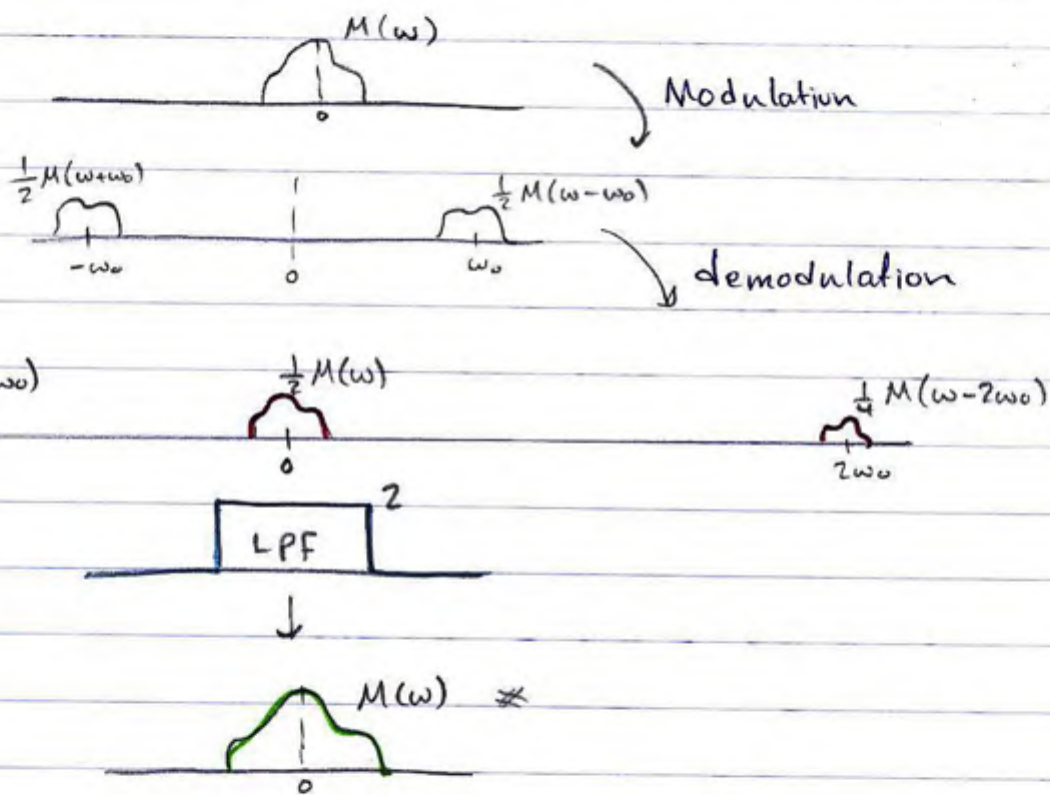 M(ω)
Modulation
0
½ M(ω+ω₀)
½ M(ω-ω₀)
-ω₀
0
ω₀
demodulation
ω₀)
½ M(ω)
¼ M(ω-2ω₀)
0
2ω₀
2
LPF
M(ω) #
0